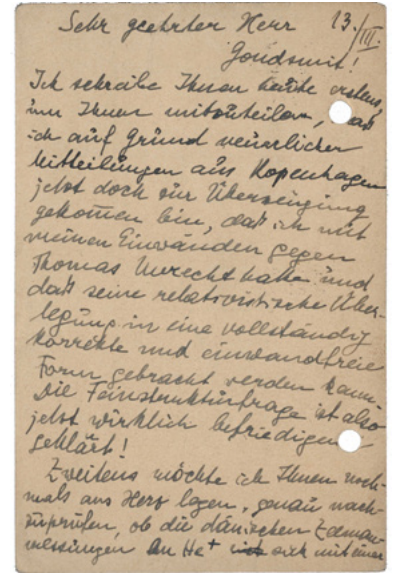 Sehr geehrter Herr 13./III.
Goudsmit!
Ich schreibe Ihnen heute erstens,
um Ihnen mitzuteilen, daß
ich auf Grund neuerlicher
Mitteilungen aus Kopenhagen
jetzt doch zur Überzeugung
gekommen bin, daß ich mit
meinen Einwänden gegen
Thomas Unrecht hatte und
daß seine relativistische Über-
legung in eine vollständig
korrekte und einwandfreie
Form gebracht werden kann.
Die Feinstrukturfrage ist also
jetzt wirklich befriedigend
geklärt!
Zweitens möchte ich Ihnen noch-
mals ans Herz legen, genau nach-
zuprüfen, ob die dänischen Zeeman-
messungen an He+ sich mit einer